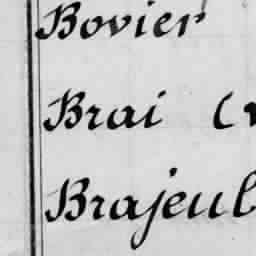 Bovier
Brai (
Brajeul